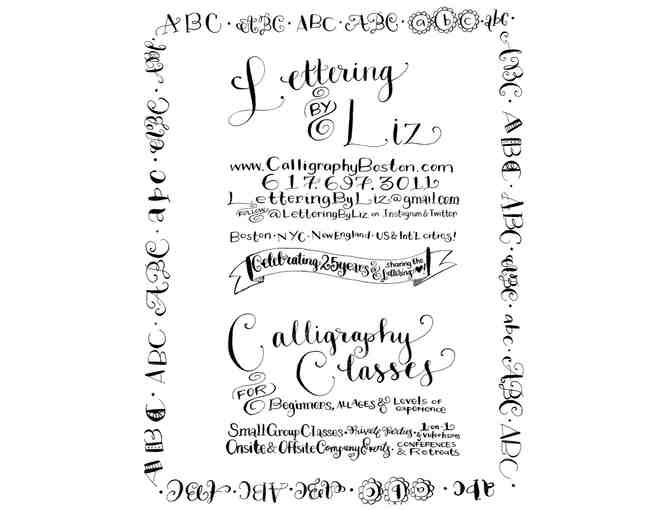 ABC · ABC · ABC · ABC · abc · abc
Lettering
BY
Liz
www.CalligraphyBoston.com
617.697.3011
LetteringByLiz@gmail.com
FOLLOW @LetteringByLiz on Instagram & Twitter
Boston · NYC · New England · US & Int'l cities!
Celebrating 25 years of sharing the Lettering ♥!
Calligraphy
Classes
FOR
Beginners, ALL AGES & Levels of experience
Small Group Classes · Private Parties · 1-on-1
Onsite & Offsite Company Events · CONFERENCES & Retreats